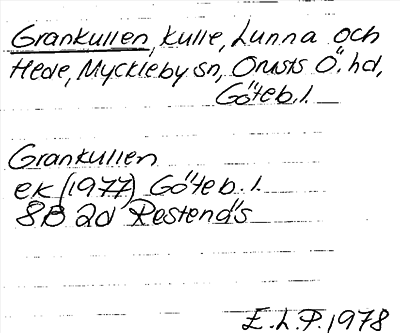 Grankullen, kulle, Lunna och
Hede, Myckleby sn, Orusts Ö. hd,
Göteb. l.
Grankullen
ek (1977) Göteb. l.
8B 2d Restenäs
E.L.P. 1978